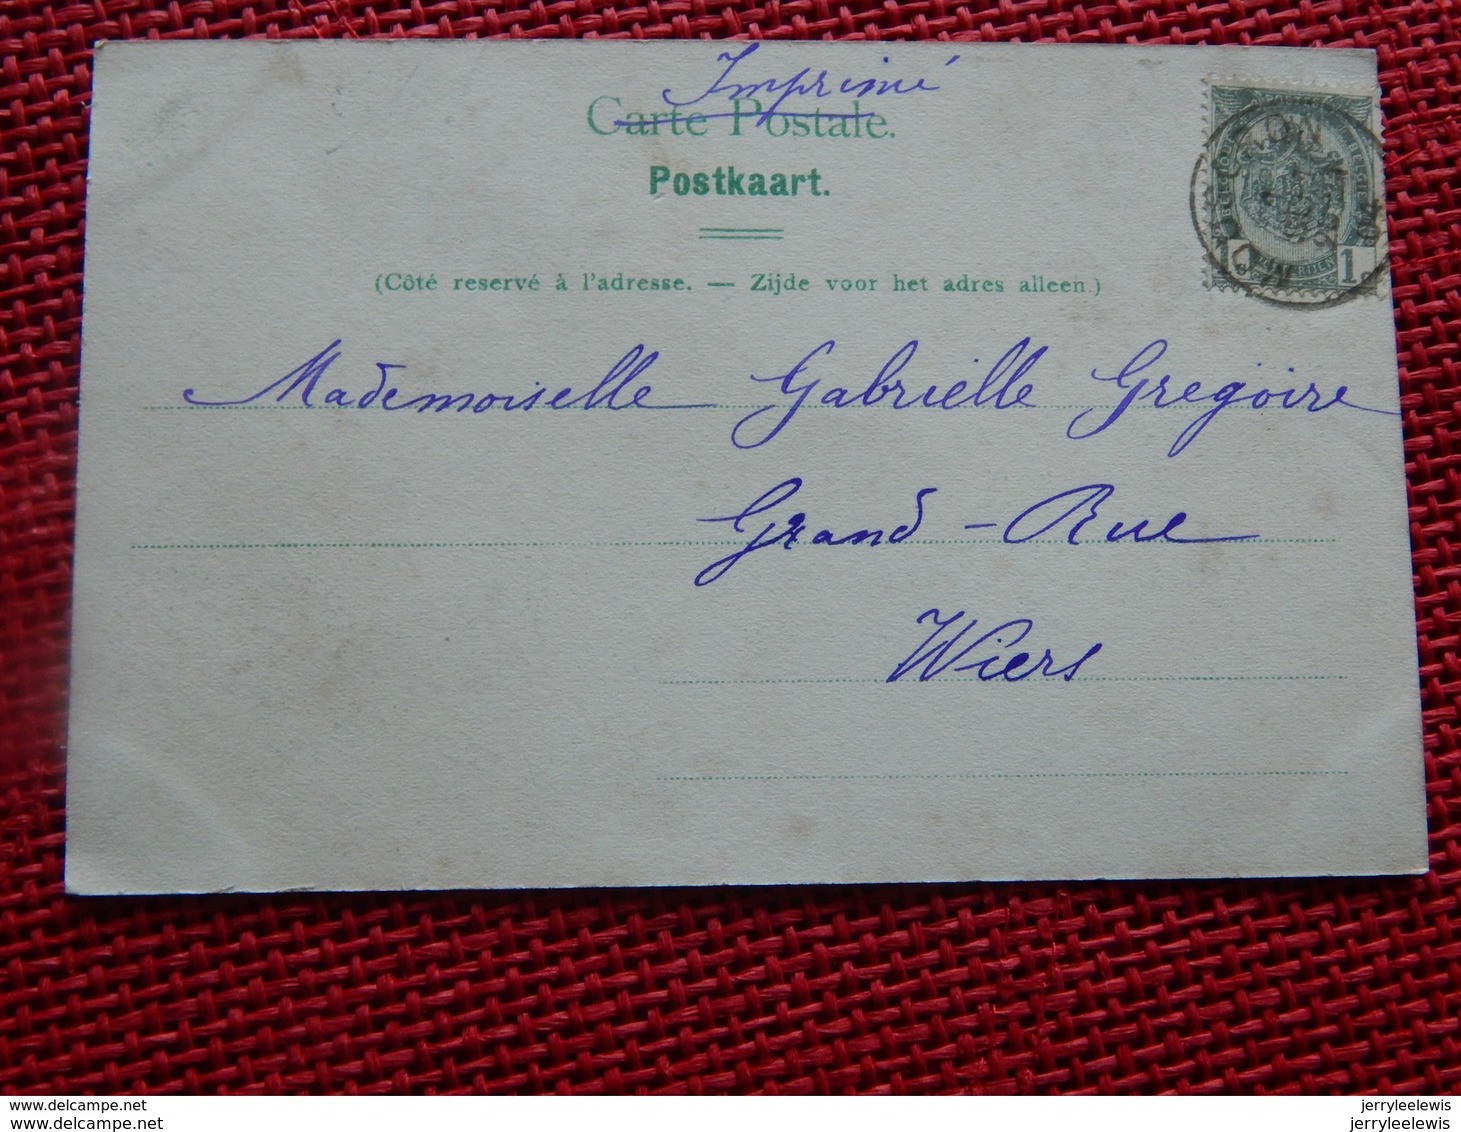 Imprimé
Carte Postale.
Postkaart.
(Côté reservé à l'adresse. — Zijde voor het adres alleen.)
1
Mademoiselle Gabrielle Gregoire
Grand-Rue
Wiers
www.delcampe.net
jerryleelewis
www.delcampe.net
jerryleelewis